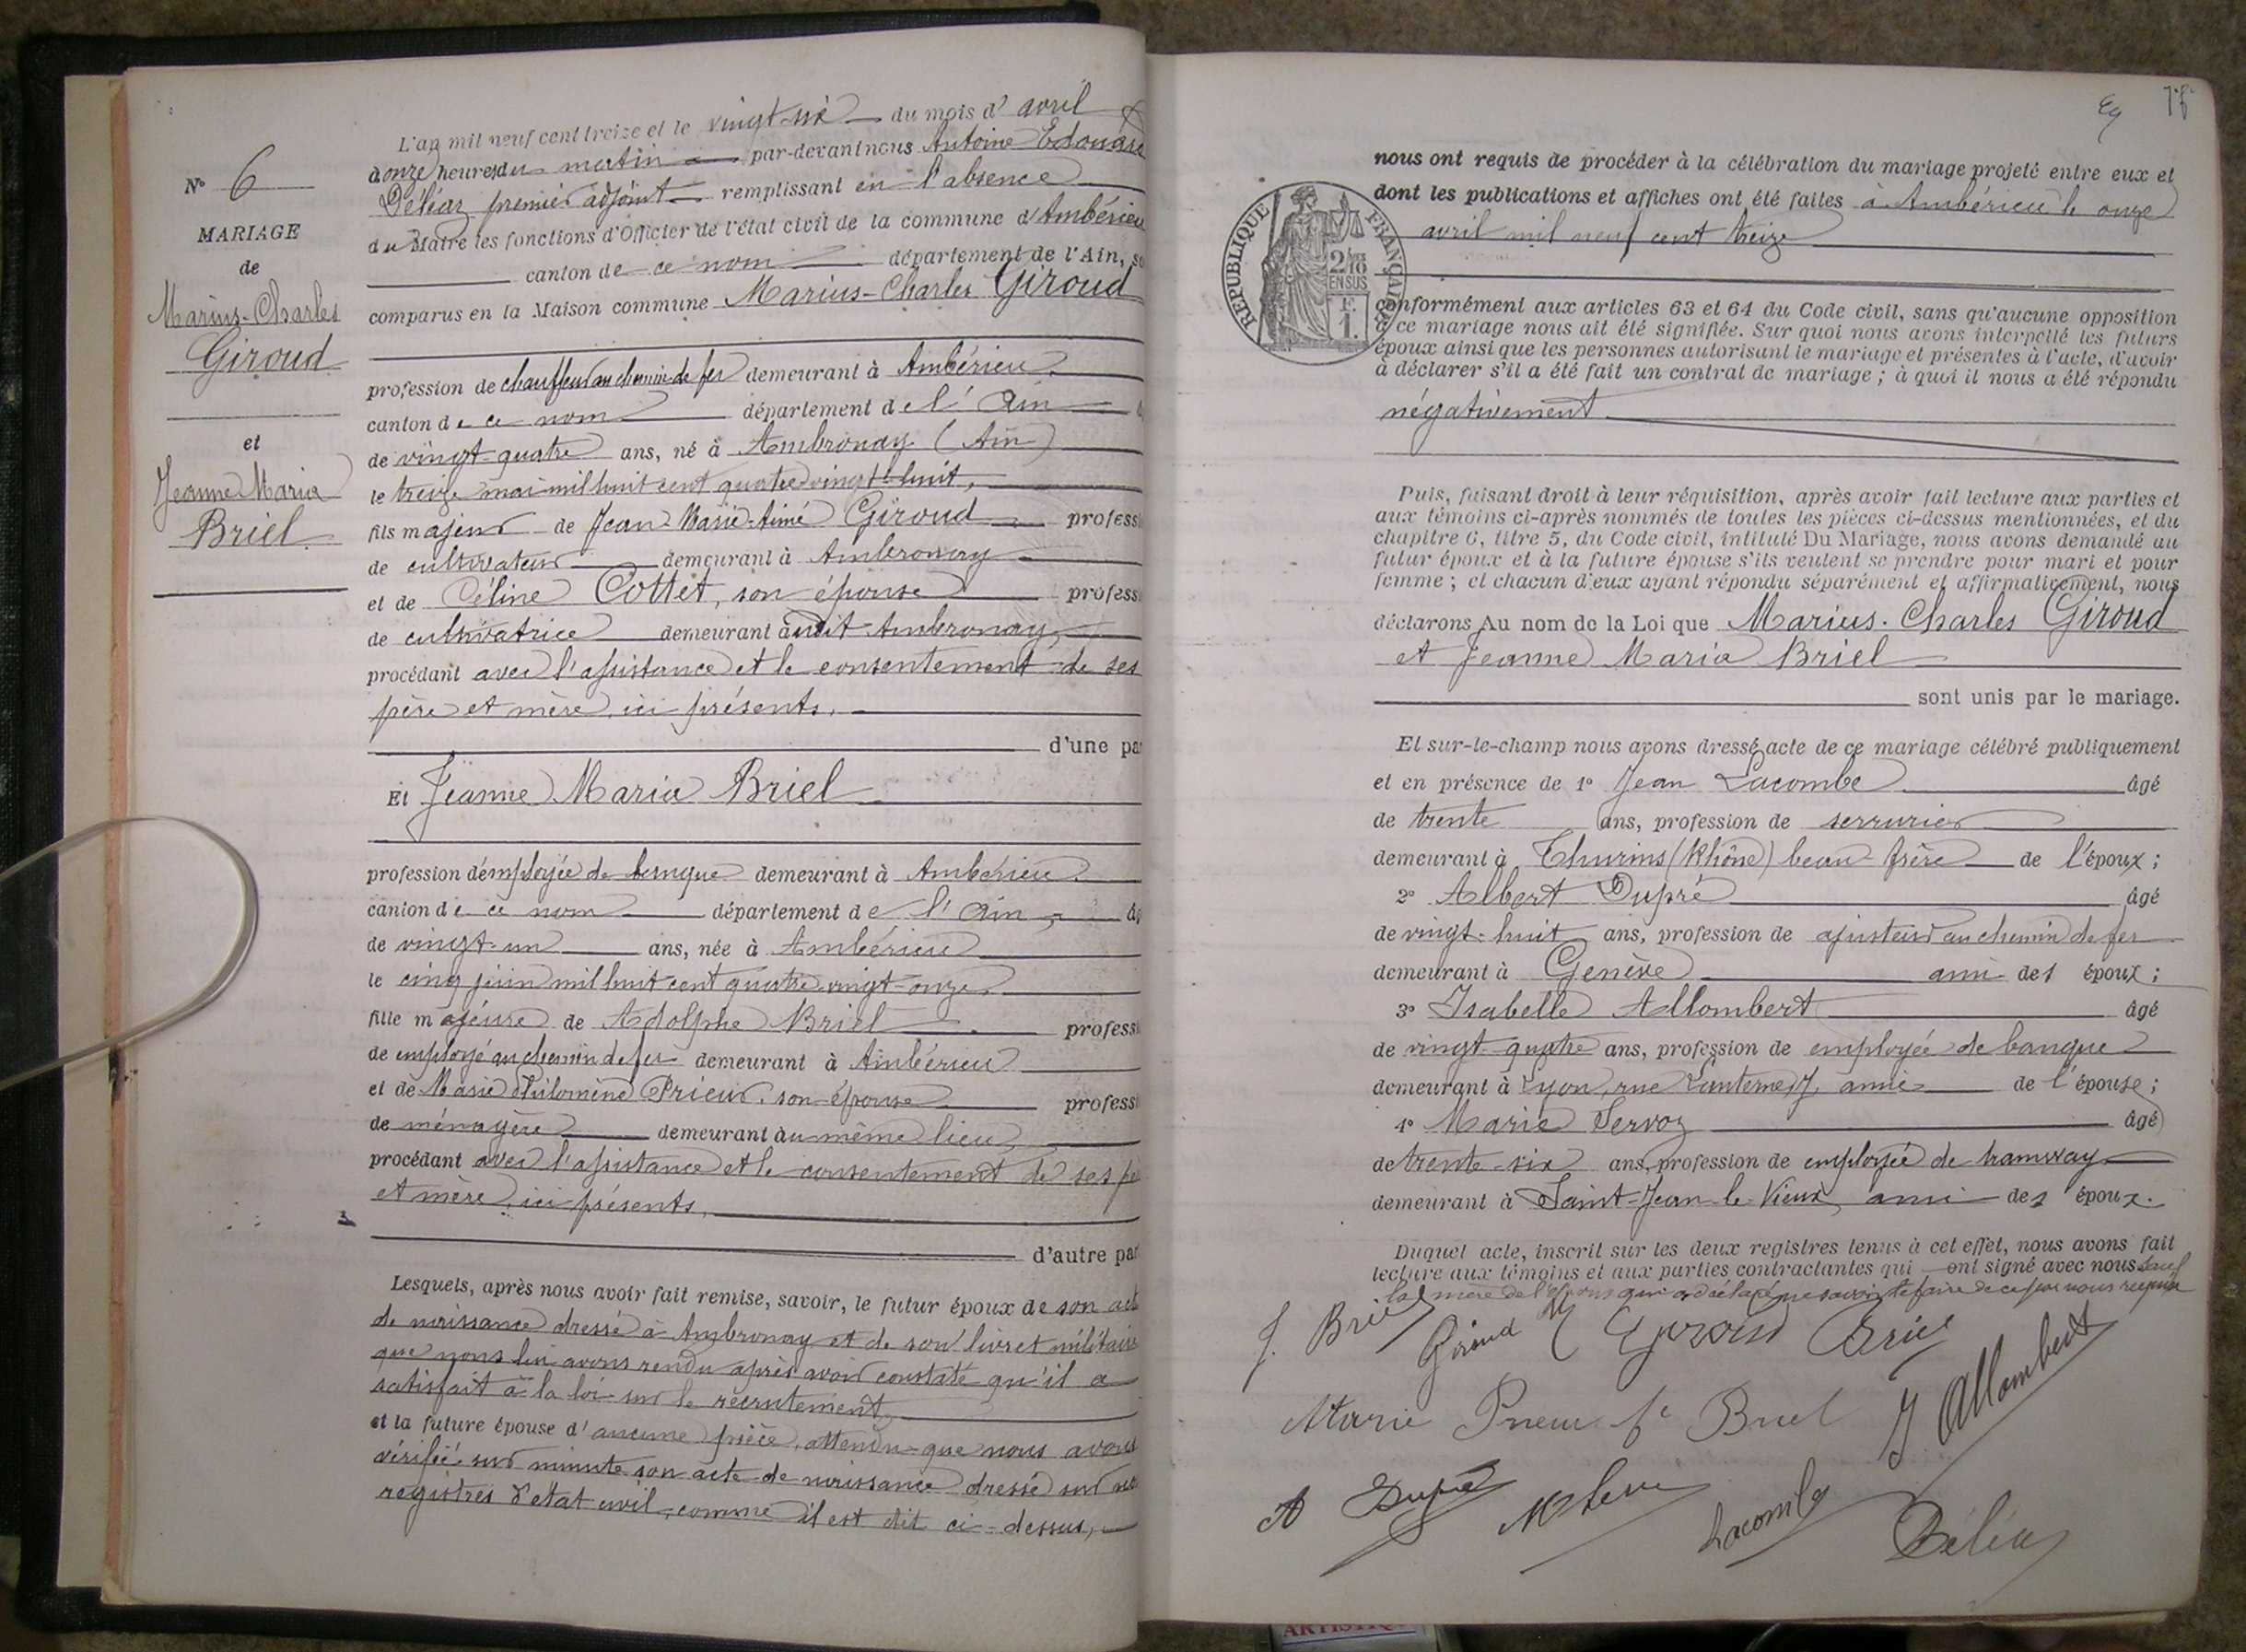 N° 6
MARIAGE
de
Marius-Charles
Giroud
et
Jeanne Maria
Briel
L'an mil neuf cent treize et le vingt-six du mois d'avril
à onze heures du matin par-devant nous Antoine Edouard
Déléaz premier adjoint remplissant en l'absence
du Maire les fonctions d'Officier de l'état civil de la commune d'Ambérieu
canton de ce nom département de l'Ain, so
comparus en la Maison commune Marius-Charles Giroud
profession de chauffeur au chemin de fer demeurant à Ambérieu
canton de ce nom département de l'Ain
de vingt-quatre ans, né à Ambronay (Ain)
le treize mai mil huit cent quatre vingt-huit,
fils majeur de Jean-Marie-Aimé Giroud professi
de cultivateur demeurant à Ambronay
et de Céline Cottet, son épouse professi
de cultivatrice demeurant audit Ambronay,
procédant avec l'assistance et le consentement de ses
père et mère, ici présents,
d'une par
Et Jeanne Maria Briel
profession d'employée de banque demeurant à Ambérieu
canton de ce nom département de l'Ain, âg
de vingt-un ans, née à Ambérieu
le cinq juin mil huit cent quatre-vingt-onze,
fille majeure de Adolphe Briel professi
de employé au chemin de fer demeurant à Ambérieu
et de Marie Philomène Prieur, son épouse professi
de ménagère demeurant au même lieu,
procédant avec l'assistance et le consentement de ses pè
et mère, ici présents,
d'autre par
Lesquels, après nous avoir fait remise, savoir, le futur époux de son acte
de naissance dressé à Ambronay et de son livret militaire
que nous lui avons rendu après avoir constaté qu'il a
satisfait à la loi sur le recrutement,
et la future épouse d'aucune pièce, attendu que nous avons
vérifié sur minute son acte de naissance dressé sur nos
registres d'état civil, comme il est dit ci-dessus,
nous ont requis de procéder à la célébration du mariage projeté entre eux et
dont les publications et affiches ont été faites à Ambérieu le onze
avril mil neuf cent treize
REPUBLIQUE FRANÇAISE
2/10
EN SUS
F.
1.
conformément aux articles 63 et 64 du Code civil, sans qu'aucune opposition
à ce mariage nous ait été signifiée. Sur quoi nous avons interpellé les futurs
époux ainsi que les personnes autorisant le mariage et présentes à l'acte, d'avoir
à déclarer s'il a été fait un contrat de mariage ; à quoi il nous a été répondu
négativement
Puis, faisant droit à leur réquisition, après avoir fait lecture aux parties et
aux témoins ci-après nommés de toutes les pièces ci-dessus mentionnées, et du
chapitre 6, titre 5, du Code civil, intitulé Du Mariage, nous avons demandé au
futur époux et à la future épouse s'ils veulent se prendre pour mari et pour
femme ; et chacun d'eux ayant répondu séparément et affirmativement, nous
déclarons Au nom de la Loi que Marius-Charles Giroud
et Jeanne Maria Briel
sont unis par le mariage.
Et sur-le-champ nous avons dressé acte de ce mariage célébré publiquement
et en présence de 1° Jean Lacombe âgé
de trente ans, profession de serrurier
demeurant à Thurins (Rhône) beau-frère de l'époux ;
2° Albert Dupré âgé
de vingt-huit ans, profession de ajusteur au chemin de fer
demeurant à Genève ami des époux ;
3° Isabelle Allombert âgé
de vingt-quatre ans, profession de employée de banque
demeurant à Lyon, rue Lanterne, 7, amie de l'épouse ;
4° Marie Servoz âgé
de trente-six ans, profession de employée de tramway
demeurant à Saint-Jean-le-Vieux, ami des époux.
Duquel acte, inscrit sur les deux registres tenus à cet effet, nous avons fait
lecture aux témoins et aux parties contractantes qui ont signé avec nous sauf
la mère de l'époux qui a déclaré ne savoir le faire de ce par nous requise
J. Briel Giroud M C Giroud Briel
Marie Prieur fe Briel J Allombert
A Dupré Lacombe Déléaz